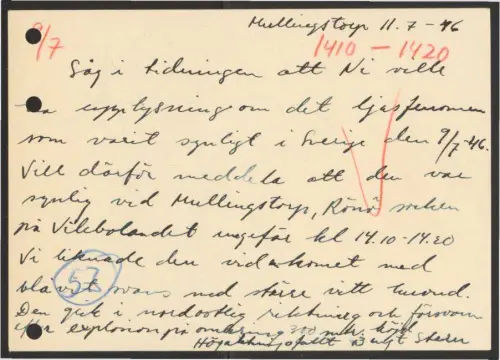 Mullingstorp 11.7-46
9/7
1410 - 1420
Såg i tidningen att Ni ville
ha upplysning om det ljusfenomen
som varit synligt i Sverige den 9/7-46.
Vill därför meddela att den var
synlig vid Mullingstorp, Rönö socken
på Vikbolandet ungefär kl 14.10-14.20
Vi liknade den vid en komet med
blåvit svans med större vitt huvud.
53
Den gick i nordostlig riktning och försvann
efter explosion på omkring 300 mtr. höjd
Högaktningsfullt Bengt Stern